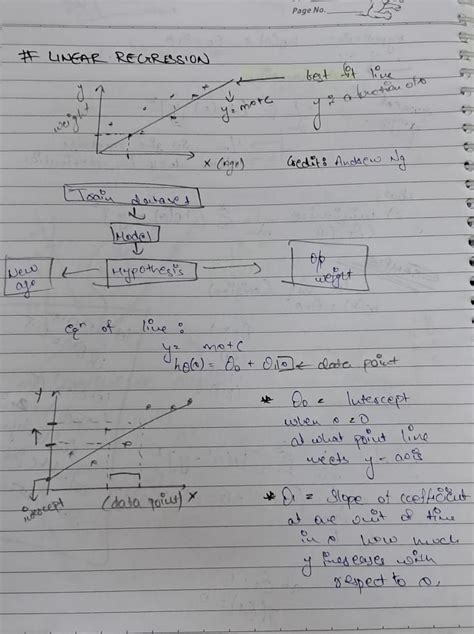 Page No.
# LINEAR REGRESSION
best fit line
y
weight
y = mx+c
y = a function of x
x (Age)
Credits Andrew Ng
Train dataset
Model
New age
Hypothesis
O/p weight
eqn of line:
y = mx+c
hθ(x) = θ0 + θ1x ← data point
y
intercept
(data point) x
* θ0 = Intercept
when x=0
at what point line
meets y-axis
* θ1 = Slope of coefficient
at one unit of time
in x how much
y increases with
respect to x.